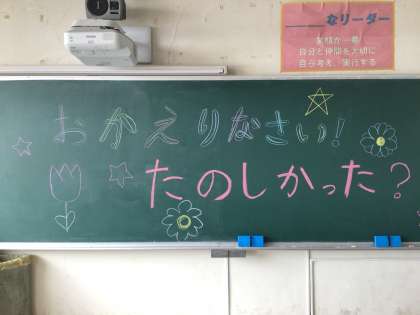 なリーダー
笑顔が一番
自分と仲間を大切に
自ら考え、実行する
おかえりなさい!
たのしかった?